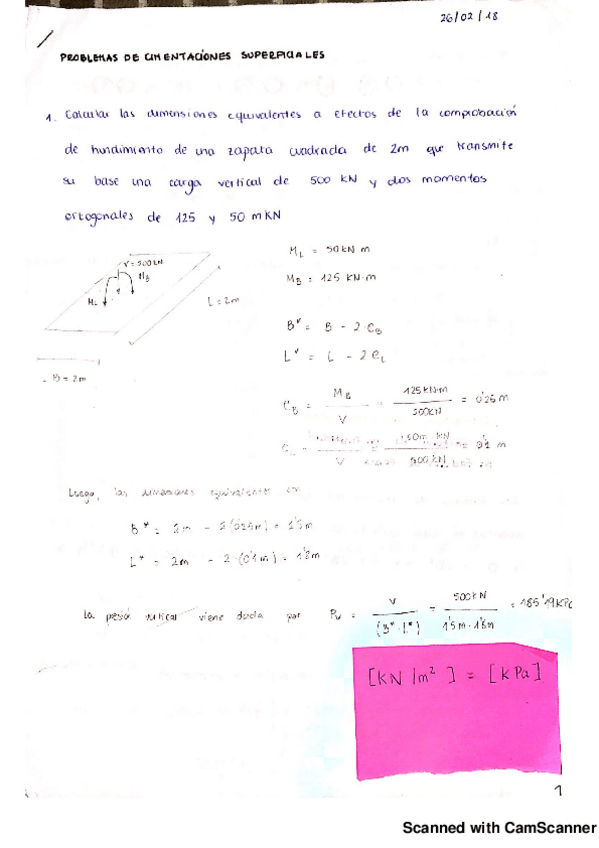 26/02/18
PROBLEMAS DE CIMENTACIONES SUPERFICIALES
1. Calcular las dimensiones equivalentes a efectos de la comprobación
de hundimiento de una zapata cuadrada de 2m que transmite
su base una carga vertical de 500 KN y dos momentos
ortogonales de 125 y 50 mKN
V = 500KN
M_B
M_L
L = 2m
B = 2m
M_L = 50 kN·m
M_B = 125 KN·m
B* = B - 2·e_B
L* = L - 2 e_L
e_B = M_B / V = 125 KN·m / 500KN = 0'25 m
V 500 KN m
Luego, las dimensiones equivalentes
B* = 2m - 2 (0'25m) = 1'5m
L* = 2m - 2 (0'1m) = 1'8m
La presión vertical viene dada por Pv = V / (B*·L*) = 500KN / 1'5m·1'8m = 185'19 KPa
[KN/m²] = [KPa]
1
Scanned with CamScanner